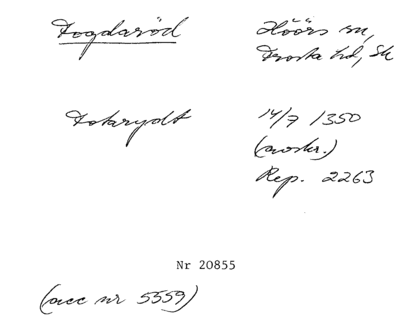 Fogdaröd
Höörs sn,
Frosta hd, Sk
Fotarydt
14/7 1350
(avskr.)
Rep. 2263
Nr 20855
(acc nr 5559)